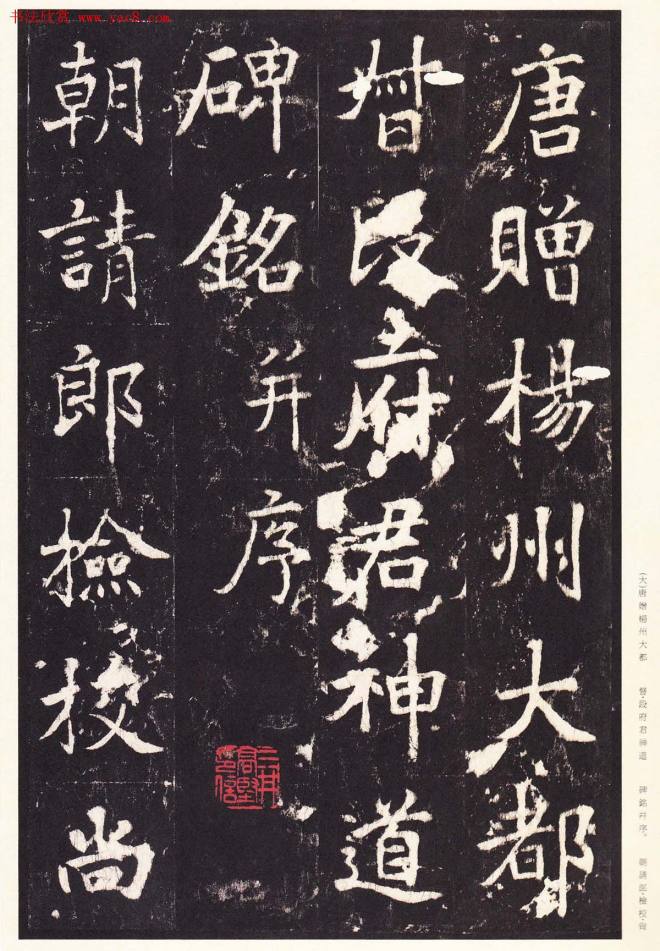 书法欣赏 www.yac8.com
唐贈楊州大都
督段府君神道
碑銘并序
朝請郎檢校尚
(大)唐贈楊州大都 督·段府君神道 碑銘并序。 朝請郎·檢校·尚